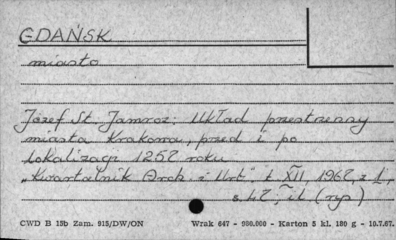 GDAŃSK
miasto
Józef St. Jamroz: Układ przestrzenny
miasta Krakowa, przed i po
lokalizacji 1257 roku
„Kwartalnik Arch. i Urb.", t XII, 1967, z 1,
s. il (rys)
CWD B 15b Zam. 915/DW/ON Wrak 647 - 900.000 - Karton 5 kl. 180 g - 10.7.67.